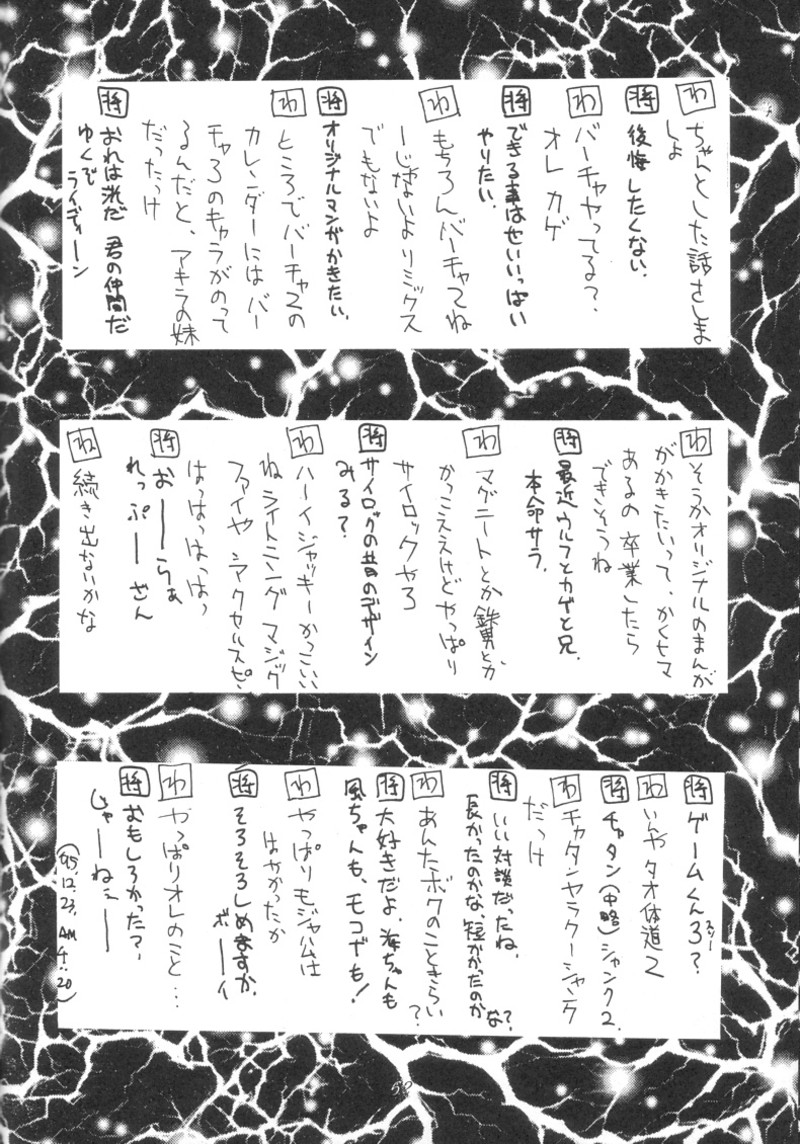 わ ちゃんとした話さしま
しょ
将 後悔したくない.
わ バーチャやってる?
オレ カゲ
将 できる事はせいいっぱい
やりたい.
わ もちろんバーチャてね
ーじゃないよ リミックス
でもないよ
将 オリジナルマンガかきたい.
わ ところでバーチャ2の
カレンダーには バー
チャ3のキャラがのって
るんだと、アキラの妹
だったっけ
将 おれは 君の仲間だ
ゆくぞ
ライディーン
わ そうかオリジナルのまんが
がかきたいって、かくヒマ
あるの 卒業したら
できそうね
将 最近ウルフとカゲと兄.
本命サラ.
わ マグニートとか とか
かっこええけどやっぱり
サイロックやろ
将 サイロックの昔のデザイン
みる?
わ ハーイジャッキーかっこいい
ね ライトニング マジック
ファイヤ シアクセルスピ、
はっはっはっはっ
将 おーーらぁ
れっぷーざん
わ 続き出ないかな
将 ゲームくん3?
わ いんや タオ体道2
将 チャタン(中略)シャンク2.
わ チャタンヤラクーシャンク
だっけ
将 いい対談だったね.
長かったのかな、短かかったのか
な?
わ あんたボクのこときらい
?
将 大好きだよ、海ちゃんも
風ちゃんも、モコナも!
わ やっぱりモジャ公は
はやかったか
将 そろそろしめますか.
ボーイ
わ やっぱりオレのこと...
将 おもしろかった?、
じゃーねぇーー
('95.12.23. AM 4:20)